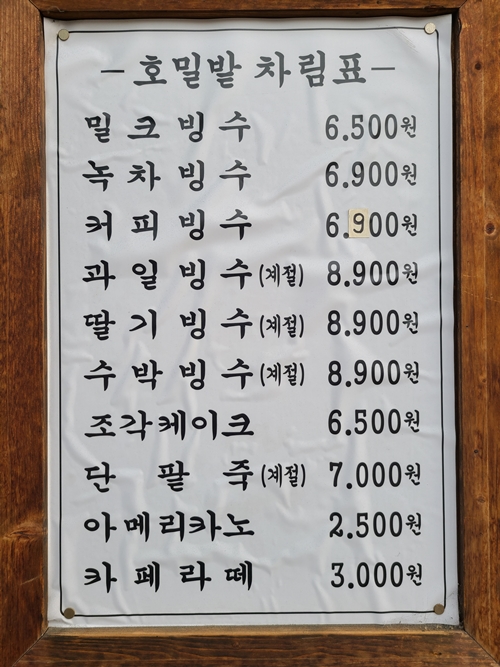 -호밀밭 차림표-
밀크빙수 6.500원
녹차빙수 6.900원
커피빙수 6.900원
과일빙수(계절) 8.900원
딸기빙수(계절) 8.900원
수박빙수(계절) 8.900원
조각케이크 6.500원
단팥죽(계절) 7.000원
아메리카노 2.500원
카페라떼 3.000원